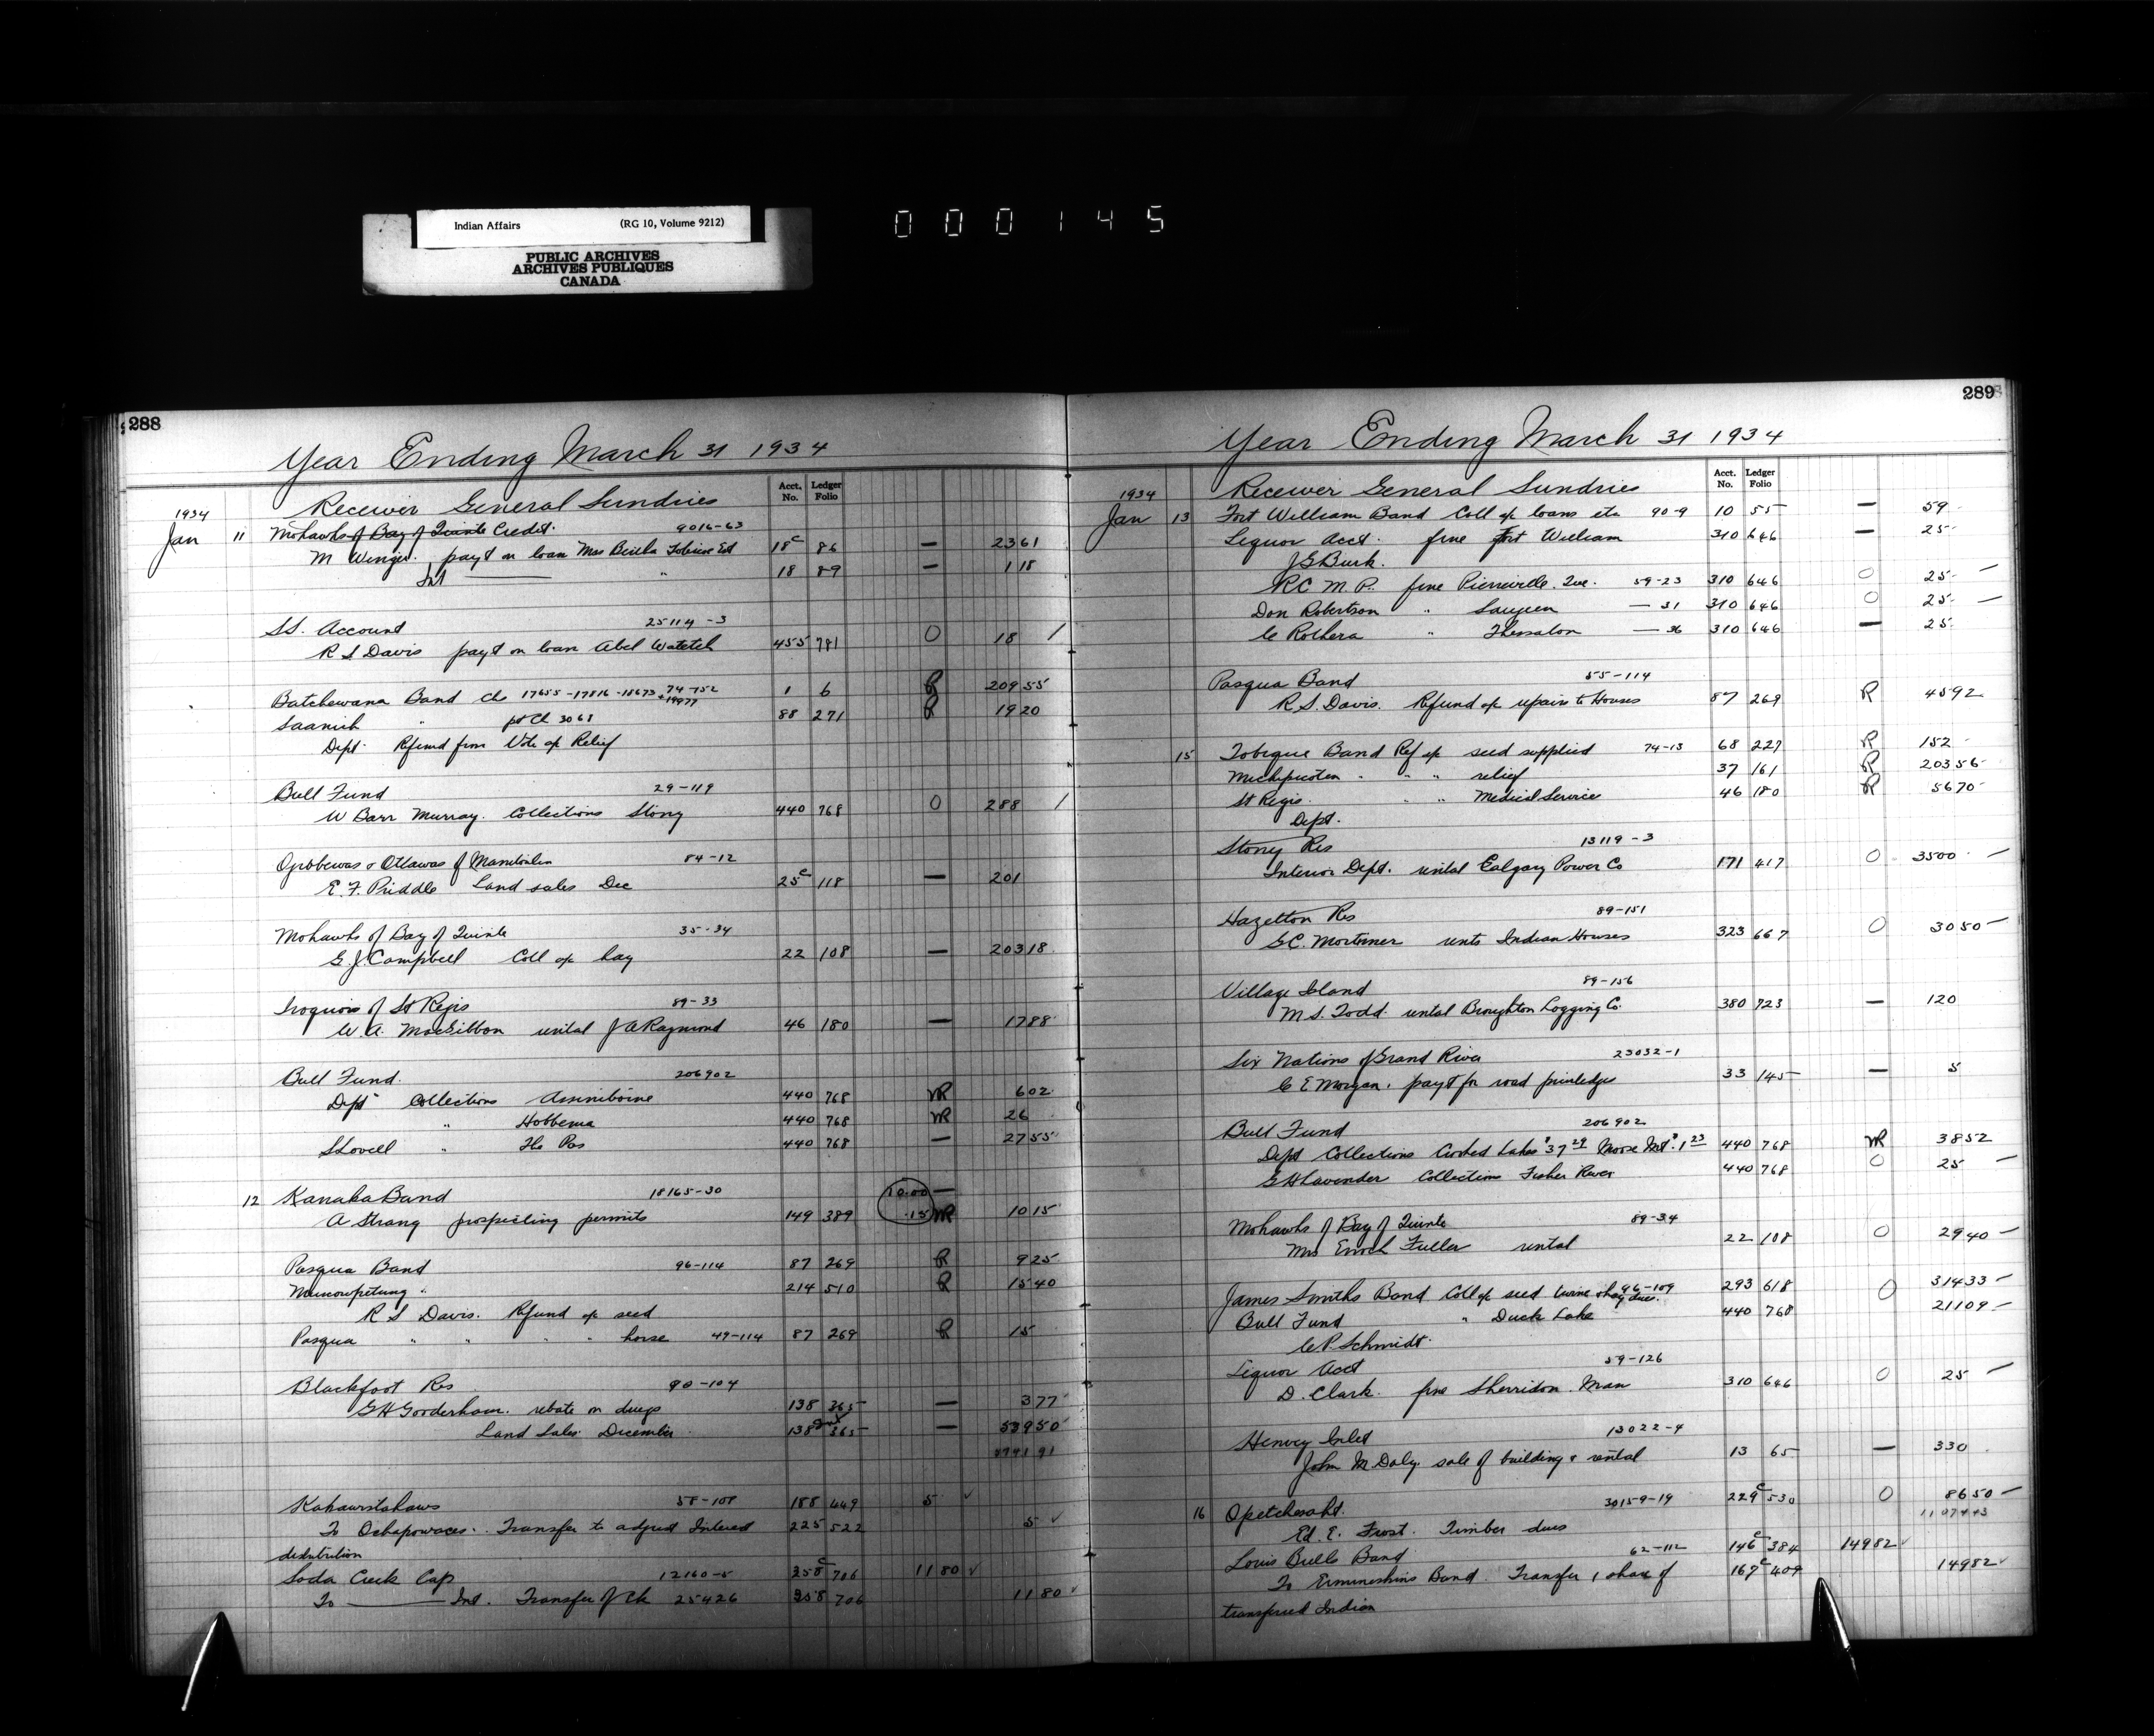 Indian Affairs (RG 10, Volume 9212)
PUBLIC ARCHIVES
ARCHIVES PUBLIQUES
CANADA
000145
288
Year Ending March 31 1934
Acct. No. Ledger Folio
1934 Receiver General Sundries
Jan 11 Mohawks of Bay of Quinte Credit. 9016-63
M Winger. payt on loan Mrs Est 18c 86 — 2361
Int " 18 89 — 118
SS. Account 25114-3
R S Davis payt on loan Abel Watetch 455 781 O 18 /
Batchewana Band Ch 17655-17816-18673 +19977 74-152 1 6 R 20955
Saanich " pt Ch 3068 88 271 R 1920
Dept. Refund from Vote op Relief
Bull Fund 29-119
W Barr Murray. Collections Stony 440 768 O 288 /
Ojibbewas & Ottawas of Manitoulin 84-12
E. F. Priddle Land sales Dec 25c 118 — 201
Mohawks of Bay of Quinte 35-34
G. J. Campbell Coll op hay 22 108 — 20318
Iroquois of St Regis 89-33
W. A. MacGibbon rental J A Raymond 46 180 — 1788
Bull Fund. 206902
Dept Collections Assiniboine 440 768 VR 602
" Hobbema 440 768 VR 26
S Lovell " The Pas 440 768 — 2755
12 Kanaka Band 18165-30 10.00 —
A Strang prospecting permits 149 389 .15 VR 1015
Pasqua Band 96-114 87 269 R 925
Muscowpetung " 214 510 R 1540
R S Davis. Refund op seed
Pasqua " " " " horse 49-114 87 269 R 15
Blackfoot Res 90-104
G H Gooderham. rebate on drugs 138 365 — 377
Land Sales. December 138 365 — 53950
Kahkewistahaws 58-108 188 449 5 ✓
To Ochapowaces. Transfer to adjust Interest 225 522 5 ✓
distribution
Soda Creek Cap 12160-5 358c 706 1180 ✓
To ——— Int. Transfer of Ch 25426 358 706 1180 ✓
289
Year Ending March 31 1934
Acct. No. Ledger Folio
1934 Receiver General Sundries
Jan 13 Fort William Band Coll op loans etc 90-9 10 55 — 59
Liquor Acct. fine Fort William 310 646 — 25
J G Burk.
R C M P. fine Pierreville. Que. 59-23 310 646 O 25 —
Don Robertson " Saugeen — 31 310 646 O 25 —
C Rothera " Thessalon — 36 310 646 — 25
Pasqua Band 55-114
R. S. Davis. Refund op repairs to Houses 87 269 R 4592
15 Tobique Band Ref op seed supplied 74-13 68 227 R 152
Michipicoten " " " relief 37 161 R 20356
St Regis. " " Medical Service 46 180 R 5670
Dept.
Stony Res 13119-3
Interior Dept. rental Calgary Power Co 171 417 O 3500 —
Hazelton Res 89-151
G. C. Mortimer rents Indian Houses 323 667 O 3050 —
Village Island 89-156
M. S. Todd. rental Broughton Logging Co. 380 723 — 120
Six Nations of Grand River 23032-1
C E Morgan. payt for road privledges 33 145 — 5
Bull Fund 206902
Dept Collections Crooked Lakes $37 29 Moose Mt. $1 23 440 768 VR 3852
G H Lavender Collections Fisher River 440 768 O 25 —
Mohawks of Bay of Quinte 89-34
Mrs Enoch Fuller rental 22 108 O 2940 —
James Smiths Band Coll op seed twine & hay dues. 96-109 293 618 O 31433 —
Bull Fund " Duck Lake 440 768 21109 —
C. P. Schmidt.
Liquor Acct 59-126
D. Clark. fine Sherridon. Man 310 646 O 25 —
Henvey Inlet 13022-4
John M Daly. sale of building & rental 13 65 — 330
16 Opetchesaht. 30159-19 229c 530 O 8650 —
Ed. E. Frost. Timber dues
Louis Bulls Band 62-112 146c 384 14982 ✓
To Ermineskins Band. Transfer, share of 167c 409 14982 ✓
transferred Indian